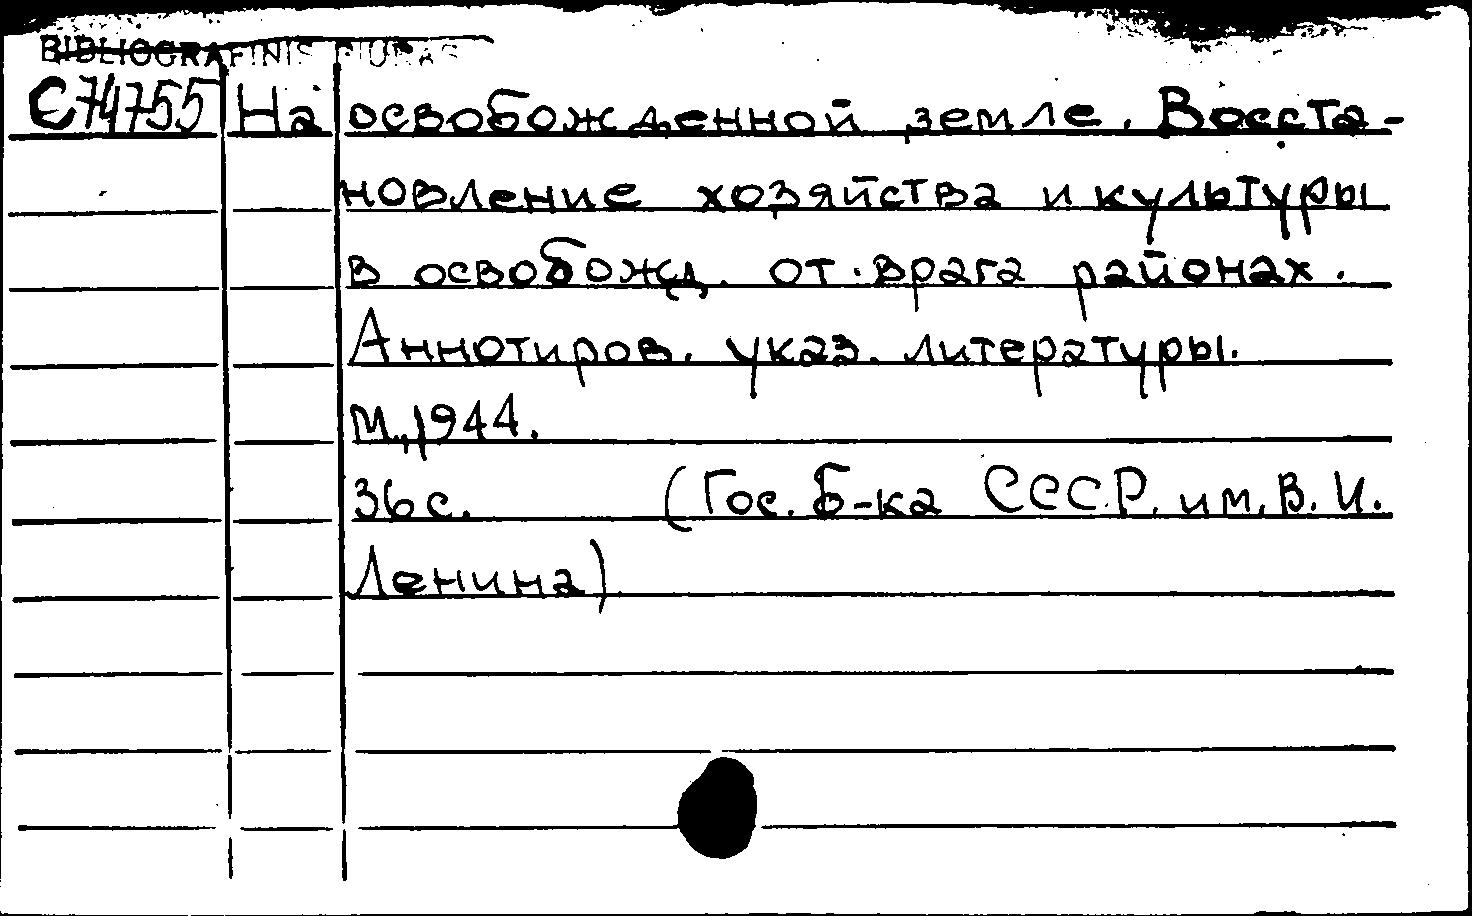 BIBLIOGRAFINIS BIURAS
C74755 На освобожденной земле. Восста-
новление хозяйства и культуры
в освобожд. от врага районах.
Аннотиров. указ. литературы.
М., 1944.
36 с. (Гос. Б-ка СССР. им. В. И.
Ленина)